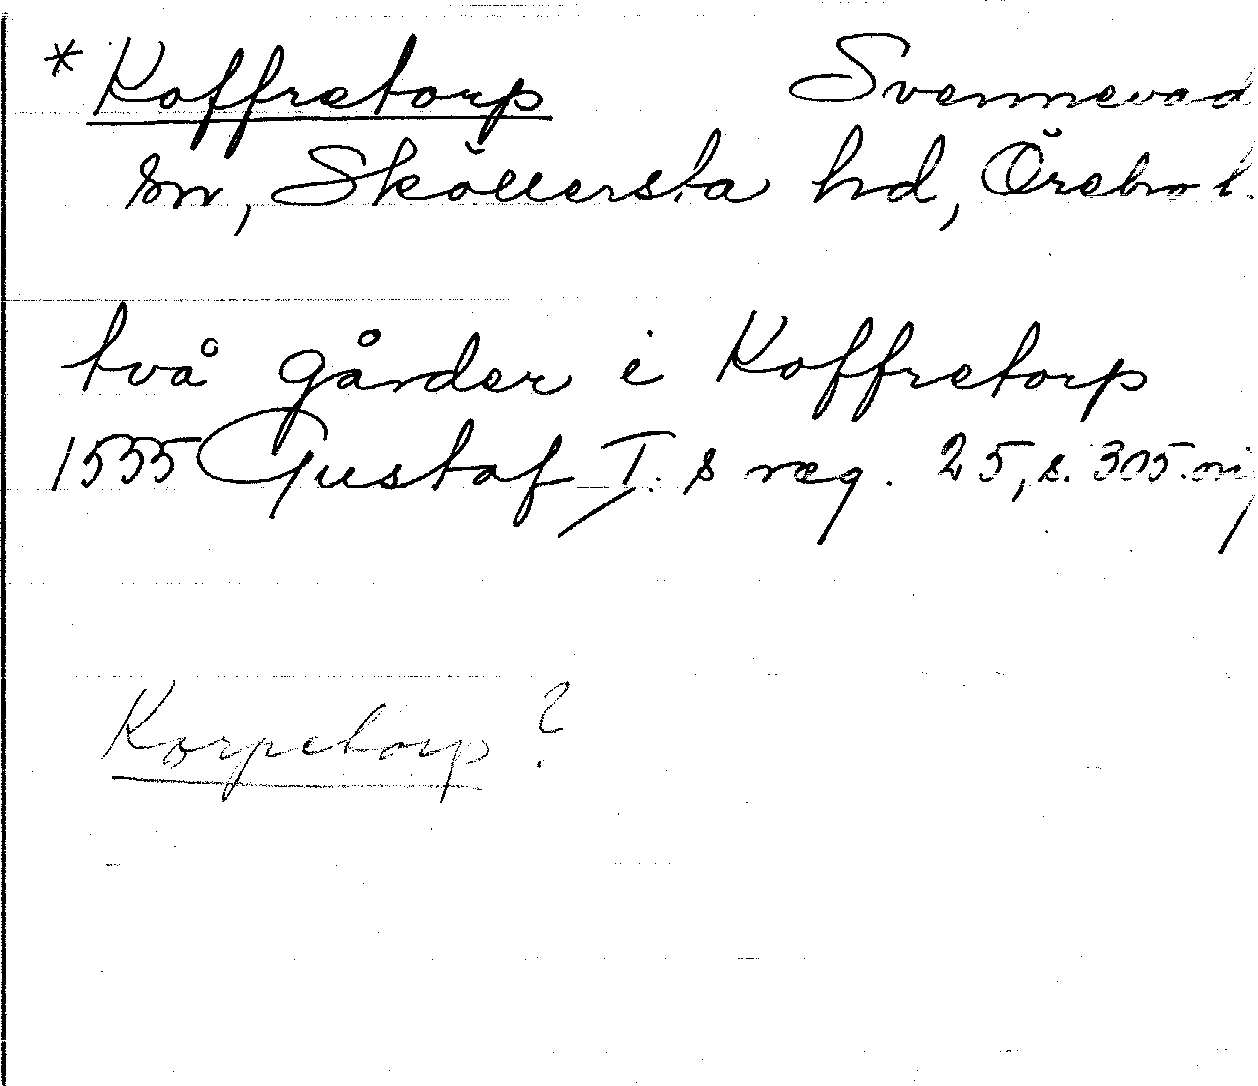 * Koffretorp Svennevad
sn, Sköllersta hd, Örebro l.
två gårder i Koffretorp
1555 Gustaf I:s reg. 25, s. 305.
Korpetorp?